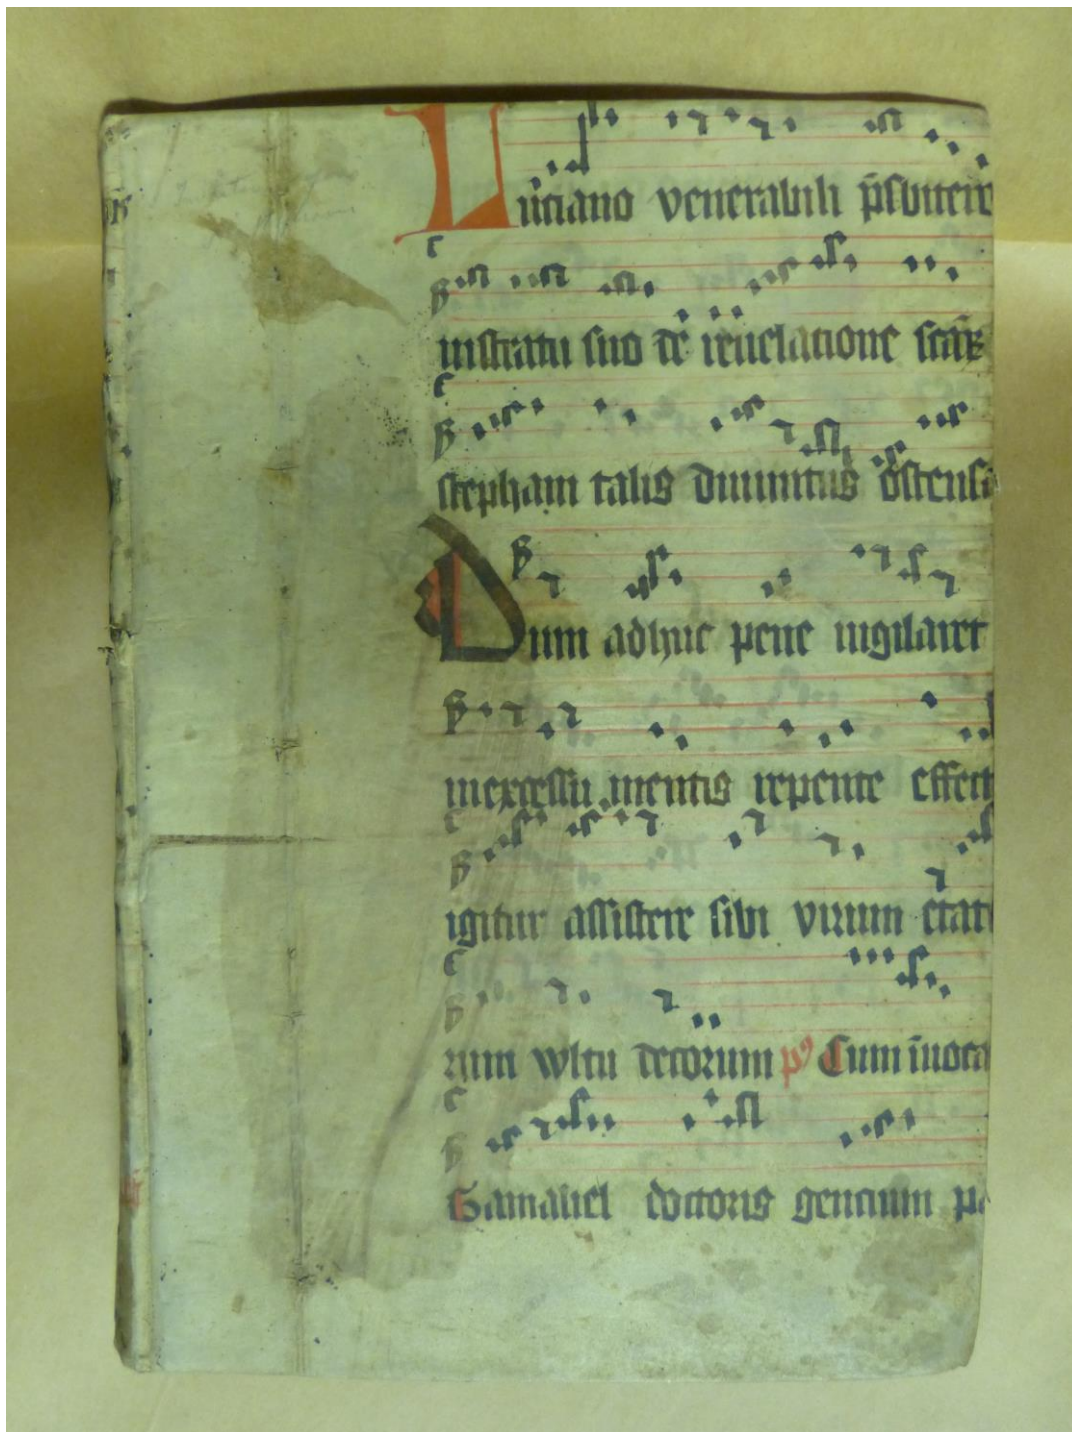 Luciano venerabili p̄sbitero
instratu suo de reuelatione sc̄ti
stephani talis diuinitus ostensa
Dum adhuc pene uigilaret
inexcessu mentis repente effect
igitur assistere sibi virum etat
rum wltu decorum pꝰ Cum īuoca
Gamaliel doctoris gencium pa